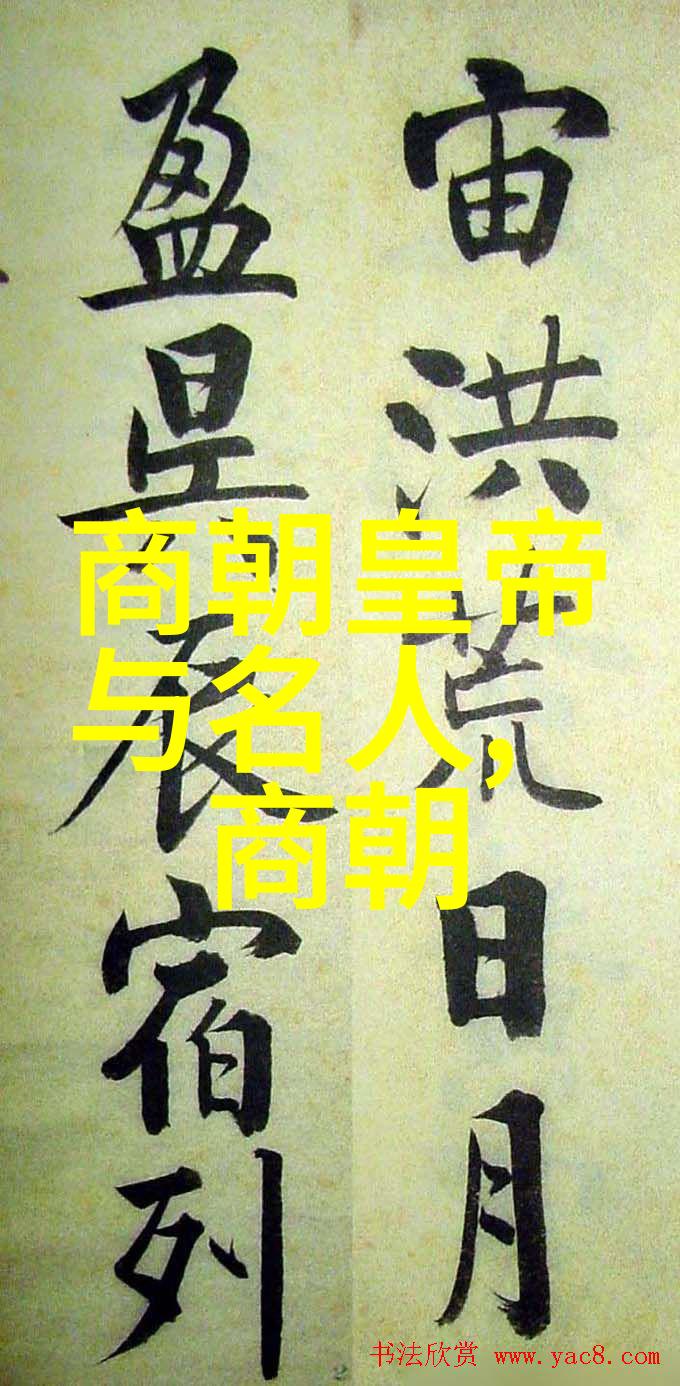 宙洪荒日月
盈昃辰宿列
商朝皇帝
与名人,
商朝
书法欣赏 www.yac8.com